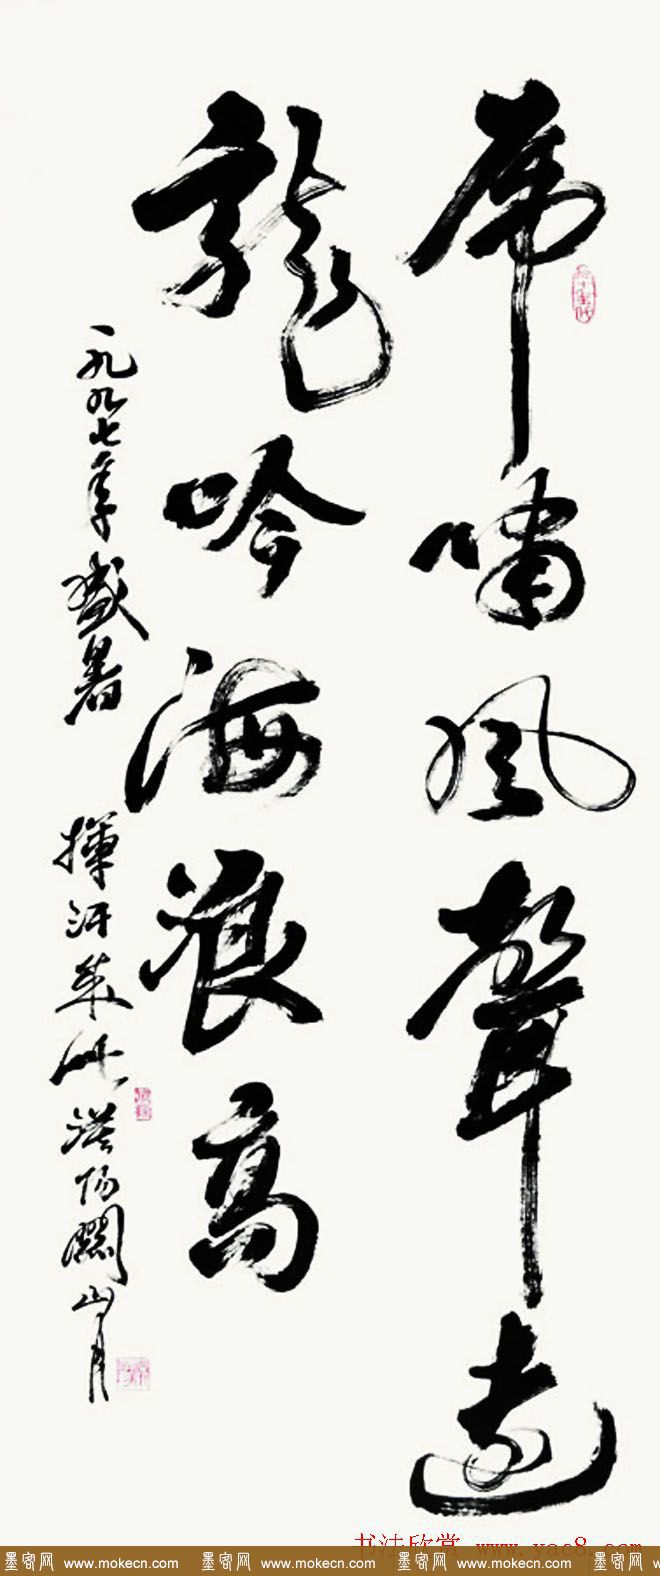 虎啸風聲遠
龍吟海浪高
一九九七年盛暑
揮汗成此 漠阳關山月
书法欣赏 www.yac8.com
墨客网 www.mokecn.com 墨客网 www.mokecn.com 墨客网 www.mokecn.com 墨客网 w